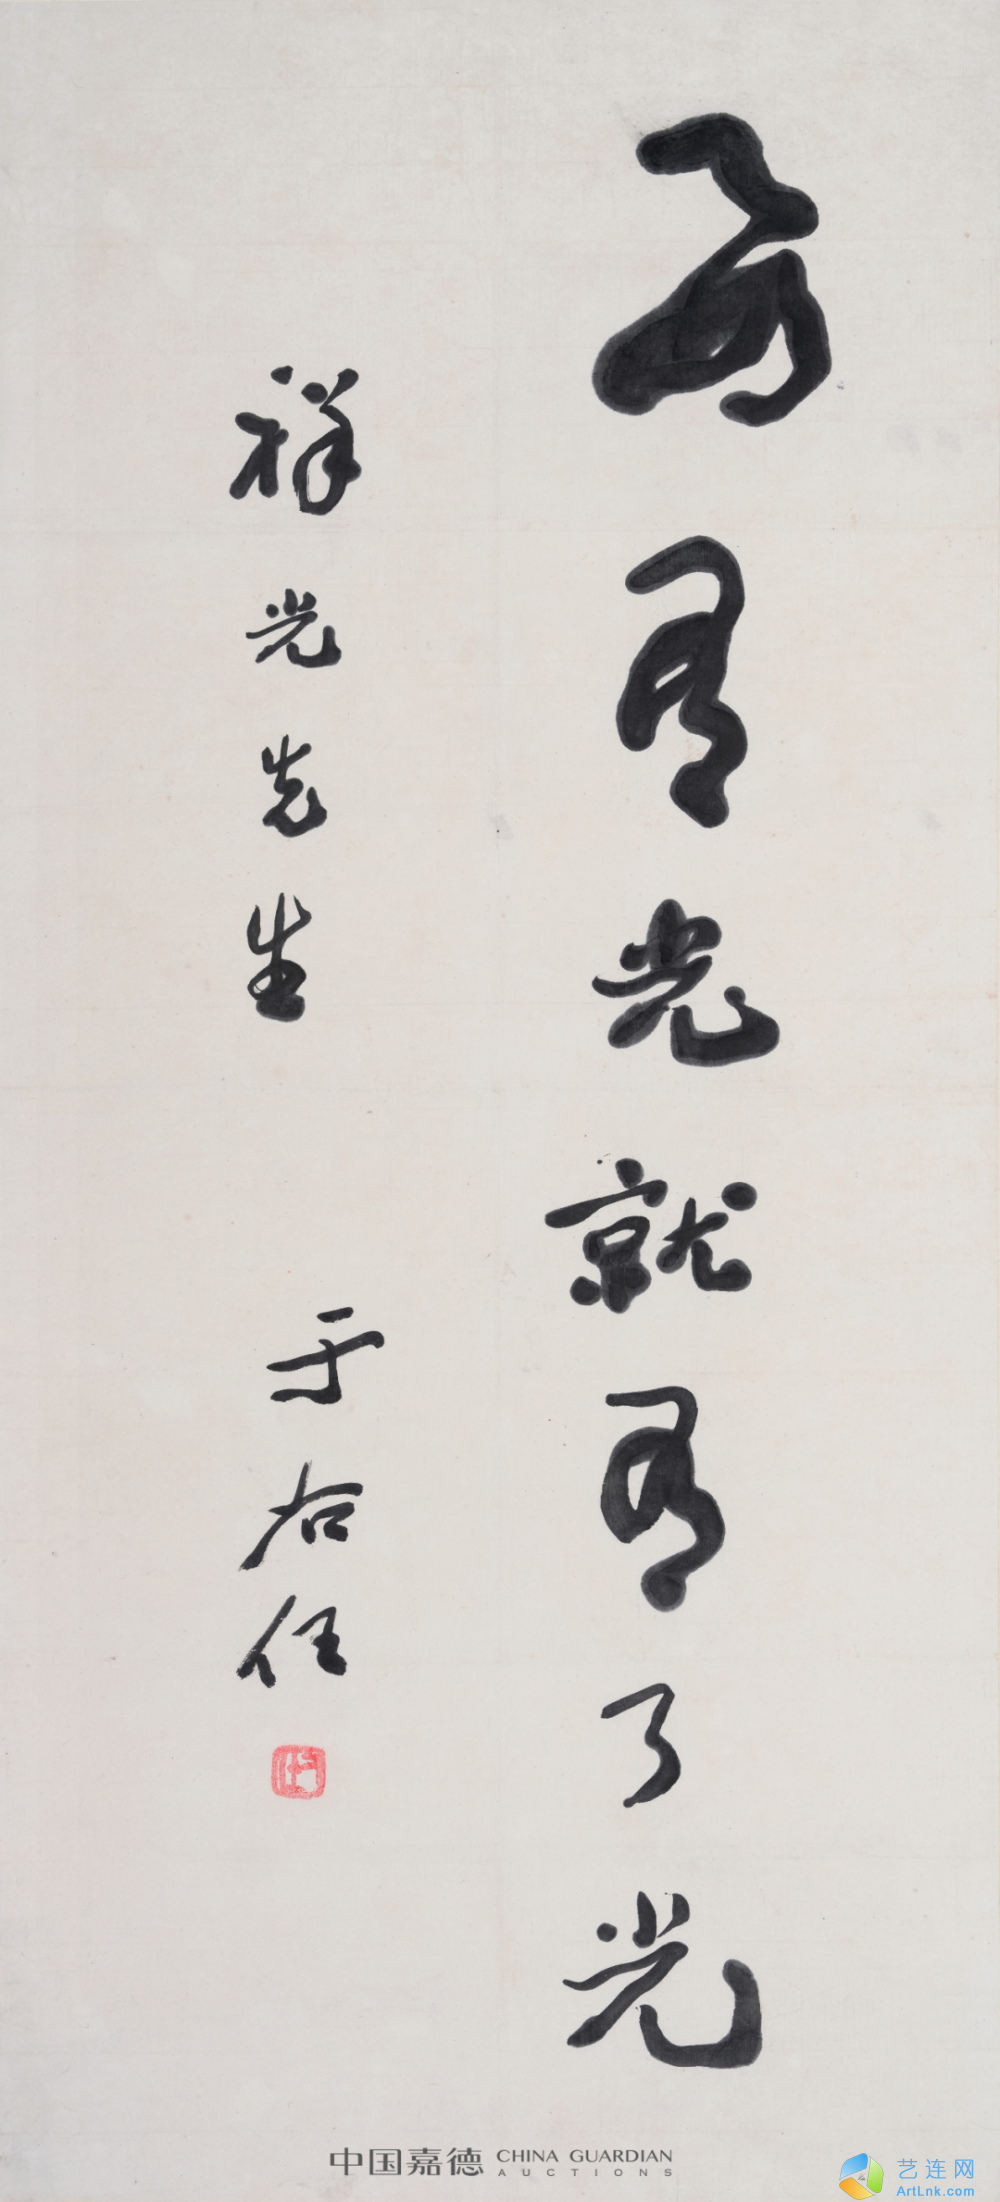 要有光就有了光
祥光先生
于右任
中国嘉德 CHINA GUARDIAN
AUCTIONS
艺连网
ArtLnk.com